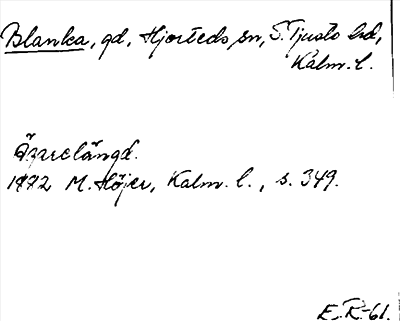 Blanka, gd, Hjorteds sn, S. Tjusts hd,
Kalm. l.
Äzurelängd.
1872 M. Höjer, Kalm. l., s. 349.
E. R-61.